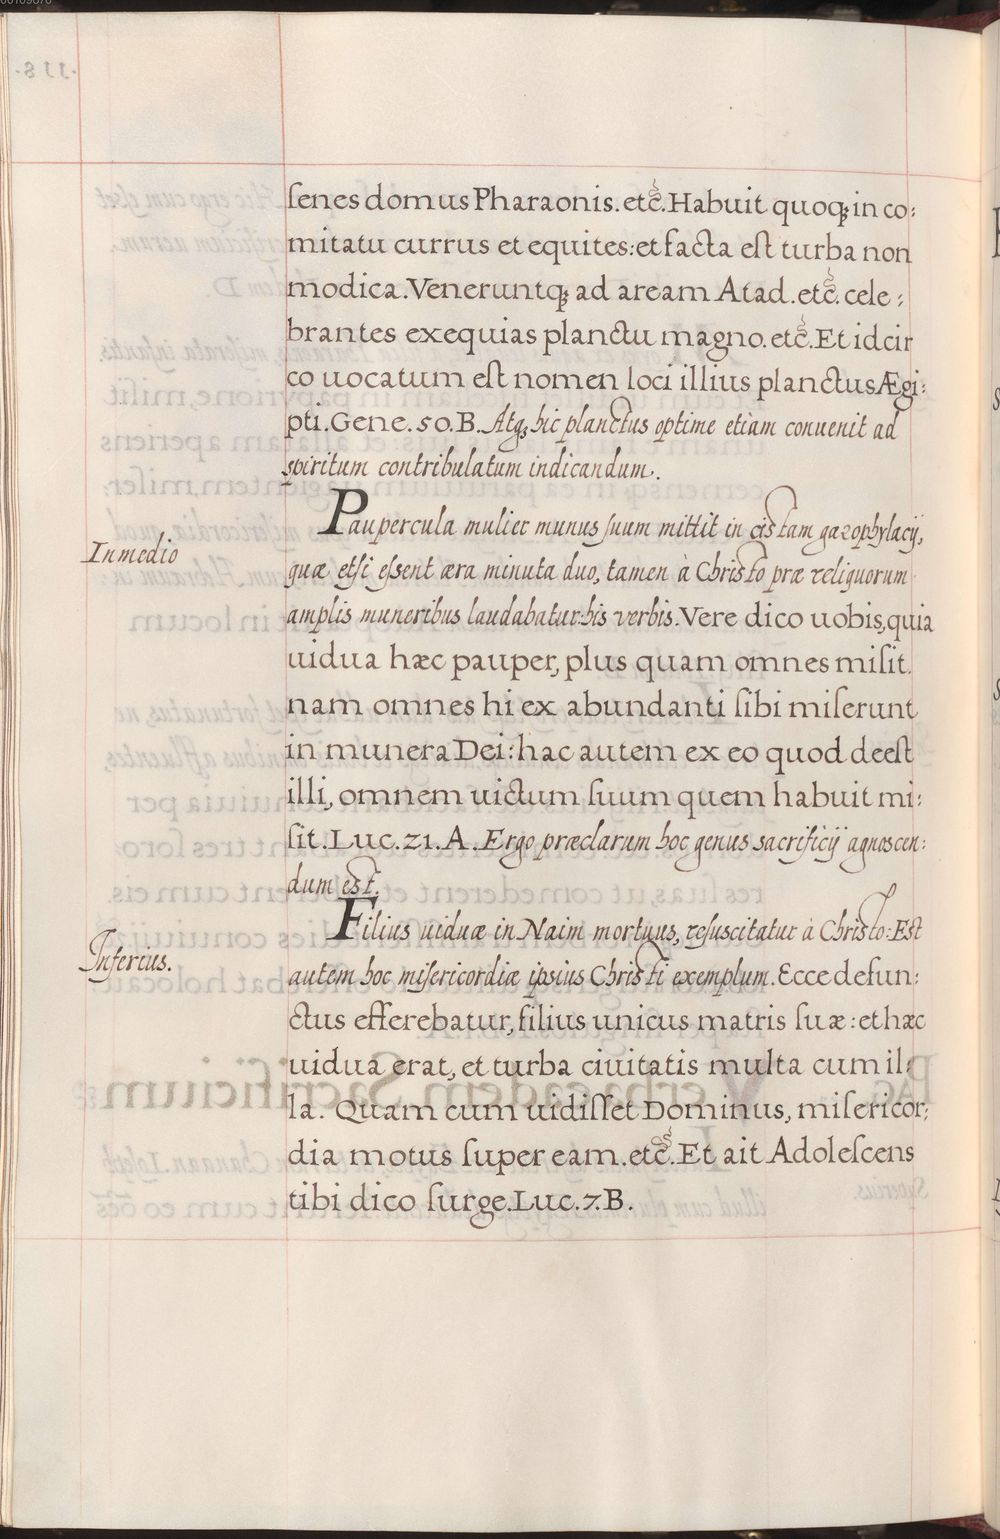 ſenes domus Pharaonis. etc̃. Habuit quoq; in co:
mitatu currus et equites: et facta eſt turba non
modica. Veneruntq; ad aream Atad. etc̃. cele:
brantes exequias planctu magno. etc̃. Et idcir
co uocatum eſt nomen loci illius planctus Ægi:
pti. Gene. 50. B. Atq; hic planctus optime etiàm conuenit ad
spiritum contribulatum indicandum.
Paupercula mulier munus ſuum mittit in cistam gazophylacij,
Inmedio
quæ etſi eſsent æra minuta duo, tamen à Christo præ reliquorum
amplis muneribus laudabatur: his verbis. Vere dico uobis, quia
uidua hæc pauper, plus quam omnes miſit.
nam omnes hi ex abundanti ſibi miſerunt
in munera Dei: hac autem ex eo quod deeſt
illi, omnem uictum ſuum quem habuit mi:
ſit. Luc. 21. A. Ergo præclarum hoc genus sacrificij agnoscen:
dum est.
Filius uiduæ in Naim mortuus, reſuscitatur à Christo: Est
Inferius.
autem hoc miſericordiæ ipsius Christi exemplum. Ecce defun:
ctus efferebatur, filius unicus matris ſuæ: et hæc
uidua erat, et turba ciuitatis multa cum il:
la. Quam cum uidiſſet Dominus, miſericor:
dia motus ſuper eam. etc̃. Et ait Adoleſcens
tibi dico ſurge. Luc. 7. B.